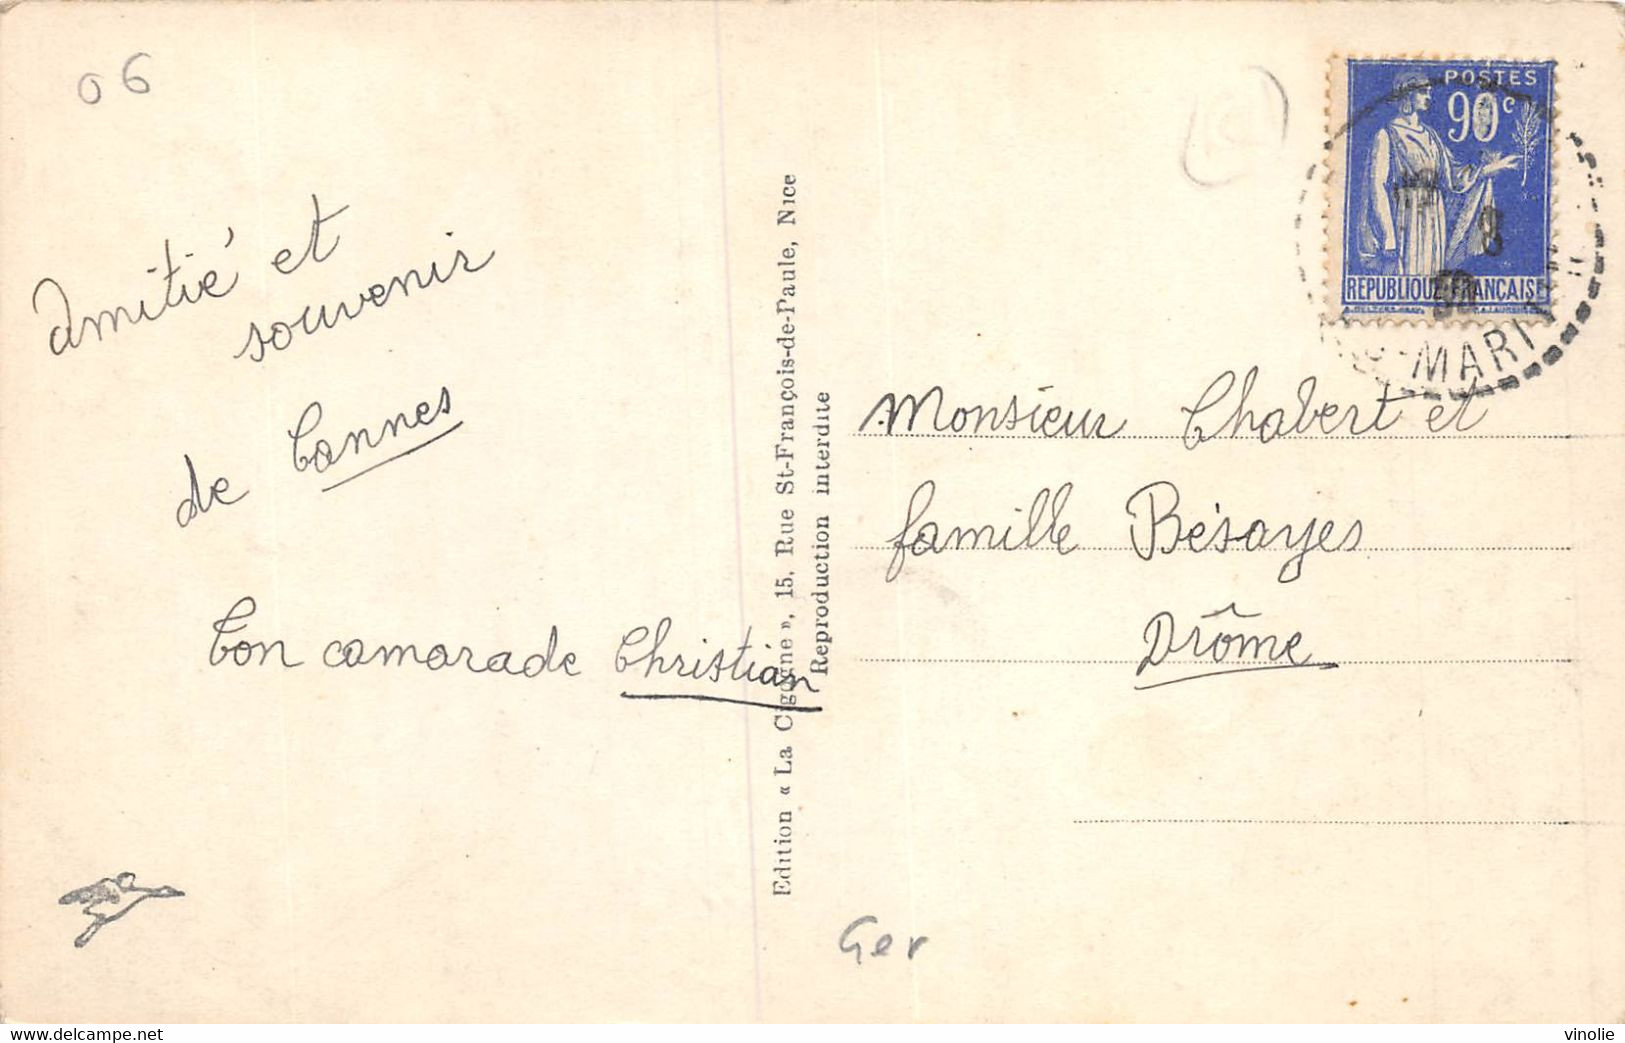 06
Amitié et
souvenir
de Cannes
Ton camarade Christian
Edition « La Cigogne », 15, Rue St-François-de-Paule, Nice
Reproduction interdite
POSTES
90c
REPUBLIQUE FRANÇAISE
8
MARITIM
Monsieur Chabert et
famille Bésayes
Drôme
Ger
www.delcampe.net
vinolie